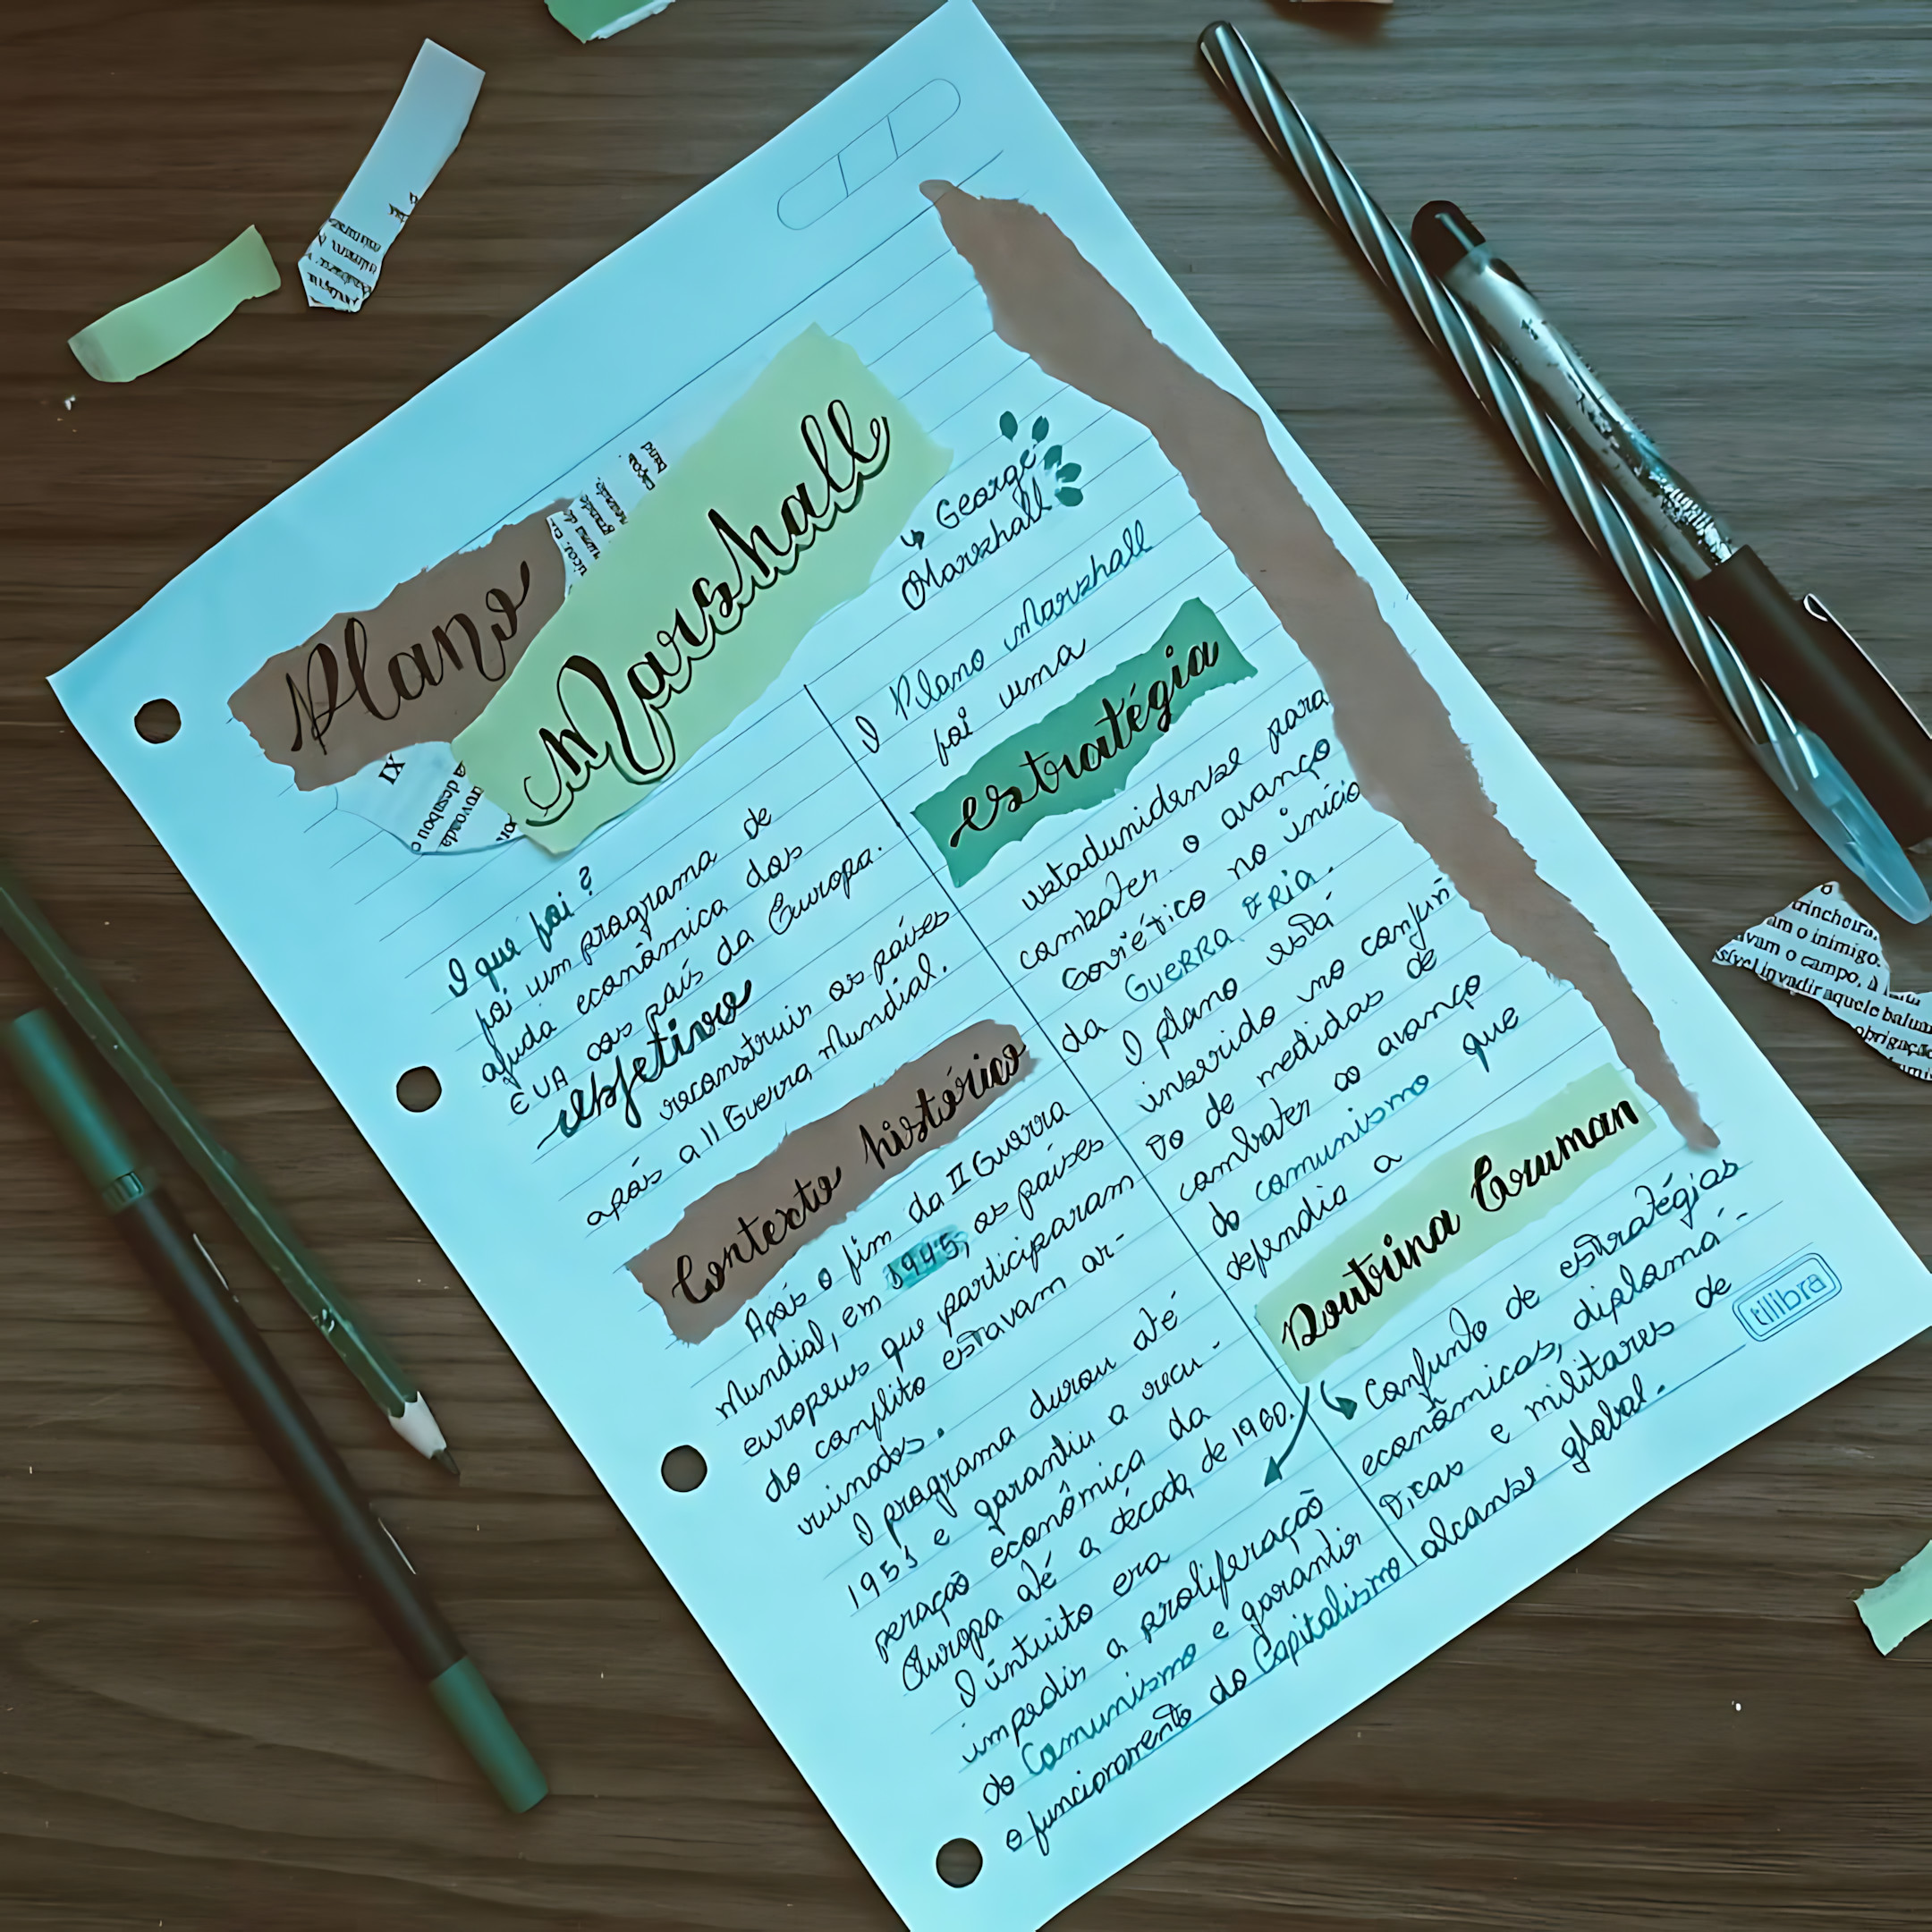 Plano
Marshall
George
Marshall
O que foi?
foi um programa de
ajuda econômica dos
EUA aos país da Europa.
objetivo
reconstruir os países
após a II Guerra Mundial.
Contexto histórico
Após o fim da II Guerra
Mundial, em 1945, os países
europeus que participaram
do conflito estavam ar-
ruinados.
O programa durou até
1951 e garantiu a recu-
peração econômica da
Europa até a década de 1960.
O intuito era
impedir a proliferação
do Comunismo e garantir
o funcionamento do Capitalismo
O Plano Marshall
foi uma
estratégia
estadunidense para
combater o avanço
Soviético no início
da GUERRA FRIA.
O plano está
inserido no conjun
to de medidas de
combater ao avanço
do comunismo que
dependia a
Doutrina Truman
Conjunto de estratégias
econômicas, diplomá-
ticas e militares de
alcanse global.
tilibra
trincheira,
am o inimigo.
avam o campo, à
sível invadir aquele